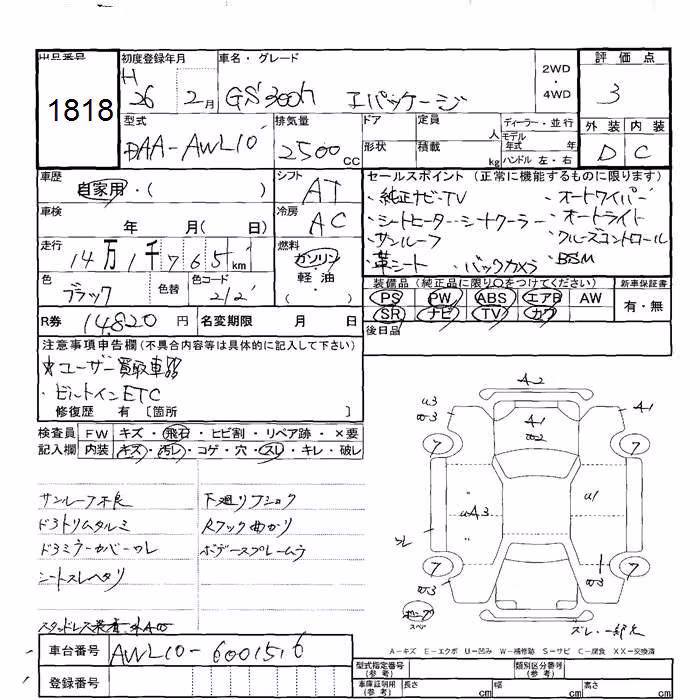 出品番号
1818
初度登録年月
H
26 2月
車名・グレード
GS300h Iパッケージ
2WD
・
4WD
評価点
3
外装 内装
D C
型式
DAA-AWL10
排気量
2500cc
ドア
形状
定員 人
積載 kg
ディーラー・並行
モデル
年式 年
ハンドル 左・右
車歴
自家用・( )
シフト
AT
車検
年 月( 日)
冷房
AC
走行
14万1千765km
燃料
ガソリン
・
軽油
・
色
ブラック
色替
色コード
212
R券 14,820円
名変期限 月 日
セールスポイント (正常に機能するものに限ります)
・純正ナビ・TV ・オートワイパー
・シートヒーター・シートクーラー ・オートライト
・サンルーフ ・クルーズコントロール
・革シート ・バックカメラ ・BSM
装備品 (純正品に限り○をつけてください)
新車保証書
PS PW ABS エアB AW
SR ナビ TV カワ
有・無
後日品
注意事項申告欄 (不具合内容等は具体的に記入して下さい)
ユーザー買取車!!
・ビルトインETC
修復歴 有 〔箇所 〕
検査員
記入欄
FW キズ・飛石・ヒビ割・リペア跡・×要
内装 キズ・汚レ・コゲ・穴・スレ・キレ・破レ
サンルーフ不良
ド3トリムタルミ
ド3ミラーカバーワレ
シートスレヘタリ
スタッドレス装着
下廻りフショク
Rフック曲がり
ボデースプレームラ
車台番号 AWL10-6001516
登録番号
A-2
u3
A-1
7 7
A-1
uA3
u1
スレ
7 7
スペア
スレ・一部欠
A-キズ E-エクボ U-凹み W-補修跡 S-サビ C-腐食 XX-交換済
型式指定番号
(参考)
類別区分番号
(参考)
車庫証明用
(参考)
長さ cm
幅 cm
高さ cm